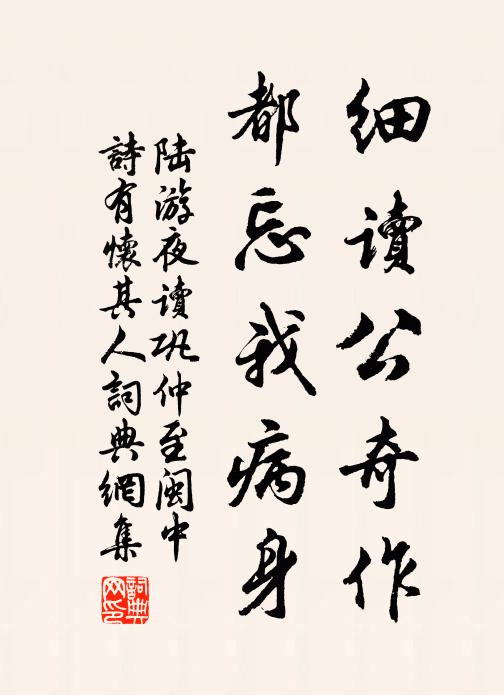 细讀公奇作
都忘我病身
陆游夜讀巩仲至閩中
詩有懷其人詞典網集
詞典網印